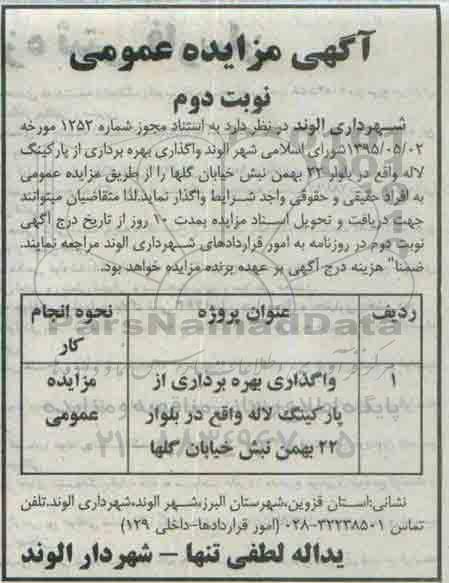 آگهی مزایده عمومی
نوبت دوم
شهرداری الوند در نظر دارد به استناد مجوز شماره ۱۲۵۲ مورخه
۱۳۹۵/۰۵/۰۲شورای اسلامی شهر الوند واگذاری بهره برداری از پارکینگ
لاله واقع در بلوار ۲۲ بهمن نبش خیابان گلها را از طریق مزایده عمومی
به افراد حقیقی و حقوقی واجد شرایط واگذار نماید.لذا متقاضیان میتوانند
جهت دریافت و تحویل اسناد مزایده بمدت ۱۰ روز از تاریخ درج آگهی
نوبت دوم در روزنامه به امور قراردادهای شهرداری الوند مراجعه نمایند.
ضمنا" هزینه درج آگهی بر عهده برنده مزایده خواهد بود.
ردیف عنوان پروژه نحوه انجام
کار
۱ واگذاری بهره برداری از مزایده
پارکینگ لاله واقع در بلوار عمومی
۲۲ بهمن نبش خیابان گلها
ParsNamadData
۰۲۱-۸۸۳۴۹۶۷۰-۵
نشانی:استان قزوین،شهرستان البرز،شهر الوند،شهرداری الوند.تلفن
تماس ۳۲۲۳۸۵۰۱-۰۲۸ (امور قراردادها-داخلی ۱۲۹)
یداله لطفی تنها – شهردار الوند